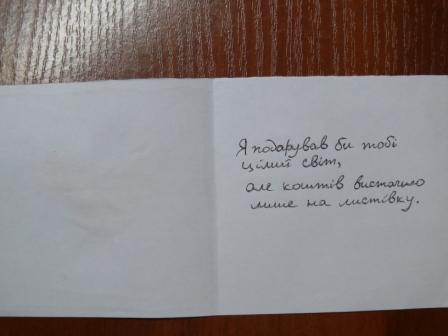 Я подарував би тобі
цілий світ,
але коштів вистачило
лише на листівку.